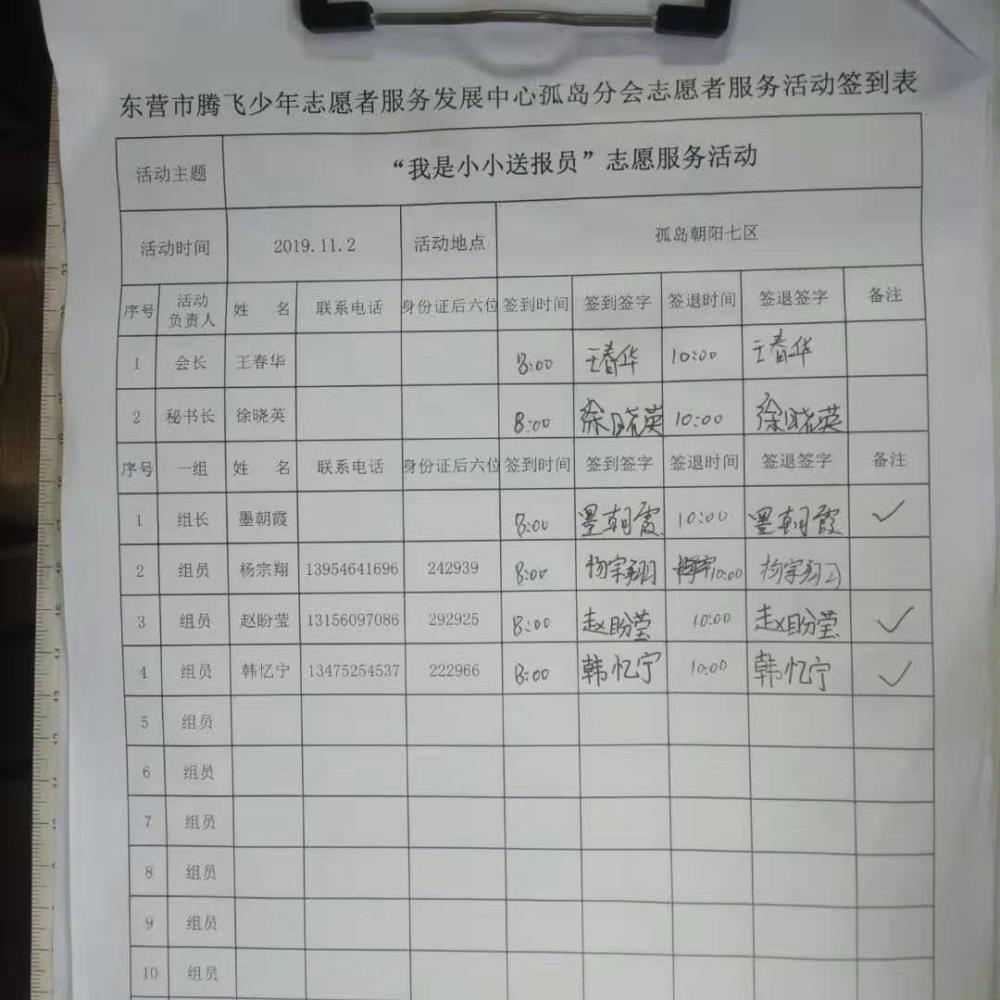 东营市腾飞少年志愿者服务发展中心孤岛分会志愿者服务活动签到表
活动主题 “我是小小送报员”志愿服务活动
活动时间 2019.11.2 活动地点 孤岛朝阳七区
序号 活动负责人 姓 名 联系电话 身份证后六位 签到时间 签到签字 签退时间 签退签字 备注
1 会长 王春华 8:00 王春华 10:00 王春华
2 秘书长 徐晓英 8:00 徐晓英 10:00 徐晓英
序号 一组 姓 名 联系电话 身份证后六位 签到时间 签到签字 签退时间 签退签字 备注
1 组长 墨朝霞 8:00 墨朝霞 10:00 墨朝霞 ✓
2 组员 杨宗翔 13954641696 242939 8:00 杨宗翔 10:00 杨宗翔
3 组员 赵盼莹 13156097086 292925 8:00 赵盼莹 10:00 赵盼莹 ✓
4 组员 韩忆宁 13475254537 222966 8:00 韩忆宁 10:00 韩忆宁 ✓
5 组员
6 组员
7 组员
8 组员
9 组员
10 组员